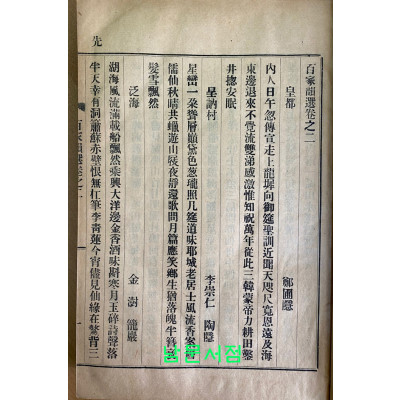 百家詩選卷之二
皇都
鄭圃隱
內人日午忽傳宣走上龍墀向御筵聖訓近聞天咫尺寬恩遠及海
東邊退來不覺流雙涕感激惟知祝萬年從此三韓蒙帝力耕田鑿
井摠安眠
呈訥村
李崇仁 陶隱
星巒一朶聳層巓黛色葱瓏照几筵道味耶城老居士風流香案
儒仙秋晴共蠟遊山屐夜靜還歌問月篇應笑鄕生猶落魄半簪
髮雪飄然
泛海
金澍 籠巖
湖海風流滿載船飄然乘興大洋邊金香酒味斟寒月玉碎詩聲落
半天幸有洞簫蘇赤壁恨無杠筆李靑蓮今宵儘見仙緣在鰲背三
先
남문서점